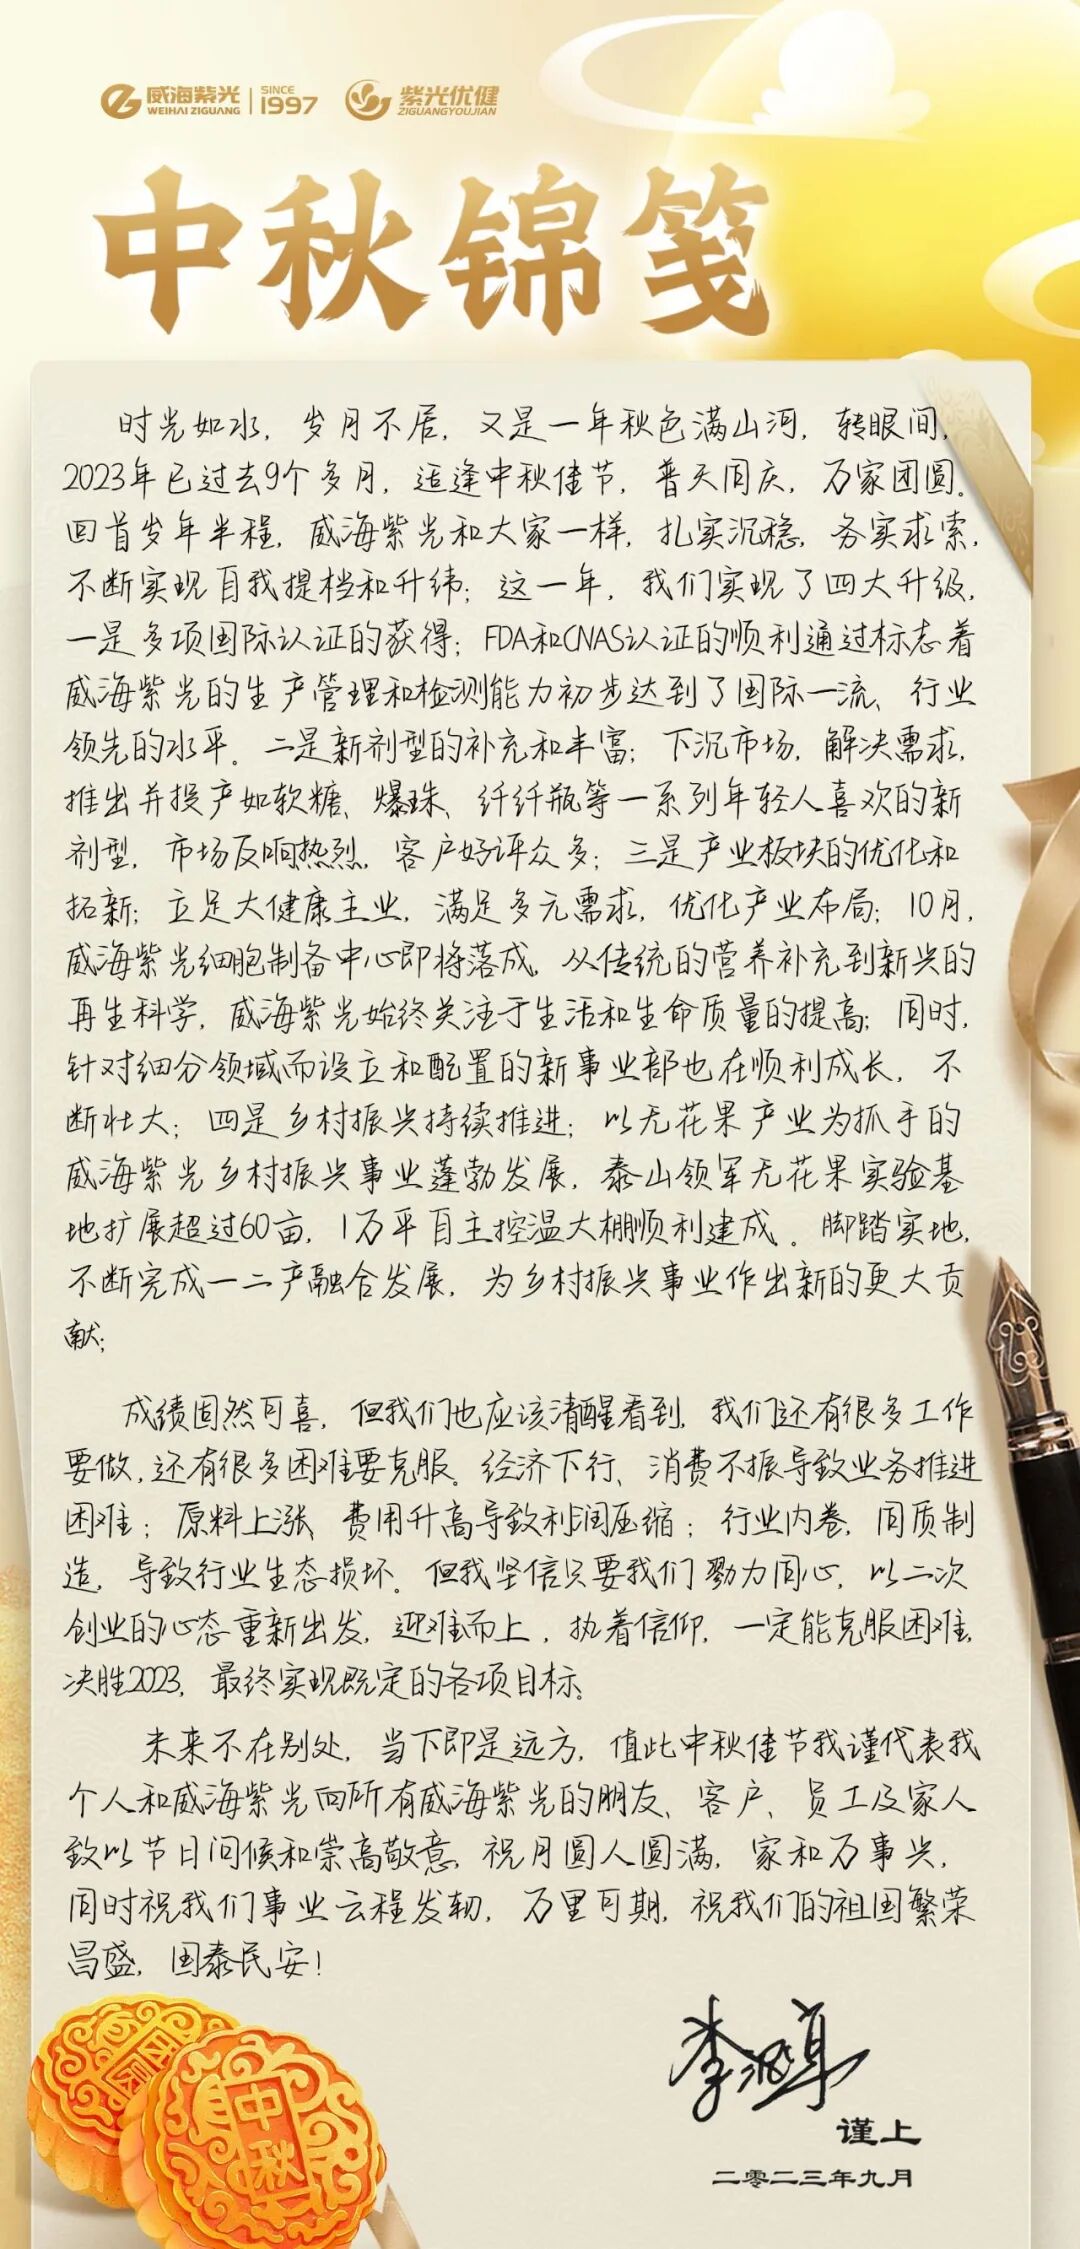 威海紫光 SINCE 紫光优健
WEIHAI ZIGUANG 1997 ZIGUANGYOUJIAN
中秋锦笺
时光如水，岁月不居，又是一年秋色满山河，转眼间，
2023年已过去9个多月，适逢中秋佳节，普天同庆，万家团圆。
回首岁年半程，威海紫光和大家一样，扎实沉稳，务实求索，
不断实现自我提档和升纬；这一年，我们实现了四大升级，
一是多项国际认证的获得；FDA和CNAS认证的顺利通过标志着
威海紫光的生产管理和检测能力初步达到了国际一流、行业
领先的水平。二是新剂型的补充和丰富；下沉市场，解决需求，
推出并投产如软糖、爆珠、纤纤瓶等一系列年轻人喜欢的新
剂型，市场反响热烈，客户好评众多；三是产业板块的优化和
拓新；立足大健康主业，满足多元需求，优化产业布局；10月，
威海紫光细胞制备中心即将落成。从传统的营养补充到新兴的
再生科学，威海紫光始终关注于生活和生命质量的提高；同时，
针对细分领域而设立和配置的新事业部也在顺利成长，不
断壮大；四是乡村振兴持续推进；以无花果产业为抓手的
威海紫光乡村振兴事业蓬勃发展，泰山领军无花果实验基
地扩展超过60亩，1万平自主控温大棚顺利建成。脚踏实地，
不断完成一二产融合发展，为乡村振兴事业作出新的更大贡
献；
成绩固然可喜，但我们也应该清醒看到，我们还有很多工作
要做，还有很多困难要克服。经济下行、消费不振导致业务推进
困难；原料上涨、费用升高导致利润压缩；行业内卷，同质制
造，导致行业生态损坏。但我坚信只要我们勠力同心，以二次
创业的心态重新出发，迎难而上，执着信仰，一定能克服困难，
决胜2023，最终实现既定的各项目标。
未来不在别处，当下即是远方，值此中秋佳节我谨代表我
个人和威海紫光向所有威海紫光的朋友、客户、员工及家人
致以节日问候和崇高敬意，祝月圆人圆满，家和万事兴，
同时祝我们事业云程发轫，万里可期，祝我们的祖国繁荣
昌盛，国泰民安！
谨上
二零二三年九月
中秋